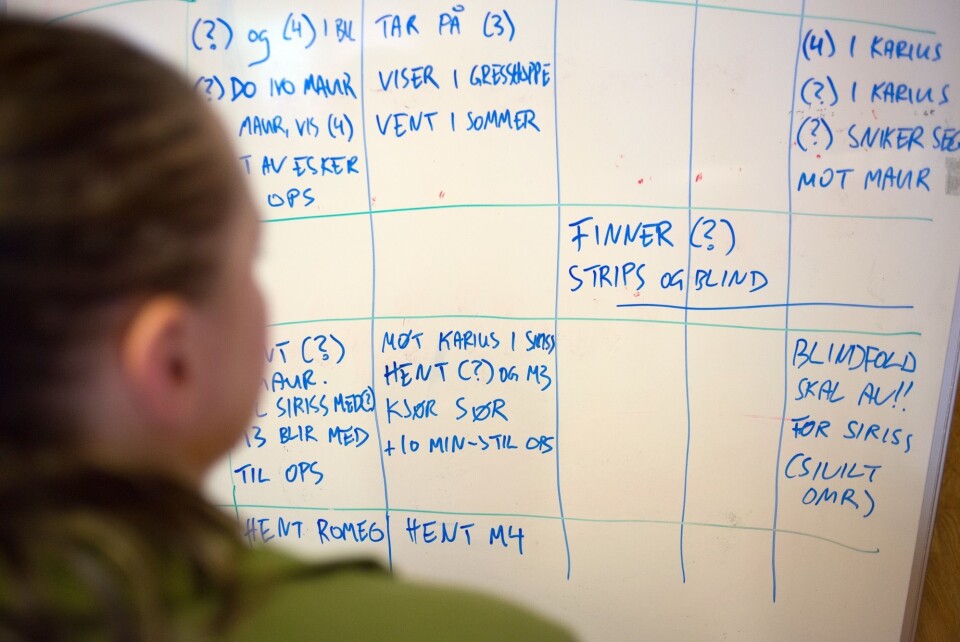 (?) og (4) I BIL
(?) DO IVO MAUR
MAUR, VIS (4)
T AV ESKER
OPS
TAR PÅ (3)
VISER I GRESSHOPPE
VENT I SOMMER
(4) I KARIUS
(?) I KARIUS
(?) SNIKER SEG
MOT MAUR
FINNER (?)
STRIPS OG BLIND
NT (?)
AUR.
SIRISS MED(?)
13 BLIR MED
TIL OPS
MØT KARIUS I SIRISS
HENT (?) OG M3
KJØR SØR
+10 MIN-STIL OPS
BLINDFOLD
SKAL AV!!
FØR SIRISS
(SIVILT
OMR)
HENT ROMEO
HENT M4